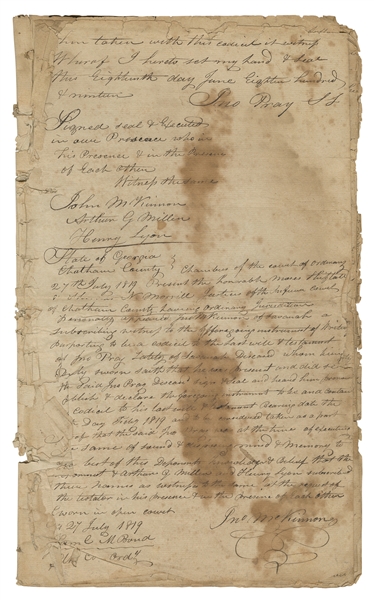 then taken with this codicil in witness
Whereof I hereto set my hand & seal
this Eighteenth day June Eighteen hundred
& nineteen
Jno Pray LS
Signed seal & Executed
in our Presence who in
his Presence & in the Presence
of Each other
Witness the same
John McKinnon
Arthur G Miller
Henry Lyon
State of Georgia
Chatham County Chambers of the court of ordinary
27th July 1819 Present the honorable Moses Sheftall
Justices of the Inferior court
of Chatham County having ordinary Jurisdiction
Personally appeared Jno McKinnon of Savannah a
subscribing witness to the foregoing instrument of Writing
Purporting to be a codicil to the last will & testament
of Jno Pray late of Savannah deceased whom being
Duly sworn saith that he was present and did see
the said Jno Pray Deceased sign & seal and heard him
publish & declare the foregoing instrument to be and contain
a codicil to his last will & testament bearing date the
Day Feby 1819 to be considered taken as a part
of that the said Jno Pray was at the time of executing
the same of sound & disposing mind & memory to
the best of this Deponents knowledge & belief that the
Deponent & Arthur G Miller & Henry Lyon subscribed
their names as witness to the same at the request of
the testator in his presence & in the presence of each other
Sworn in open court
27 July 1819 Jno McKinnon
M Bond
Clk Co Ordy